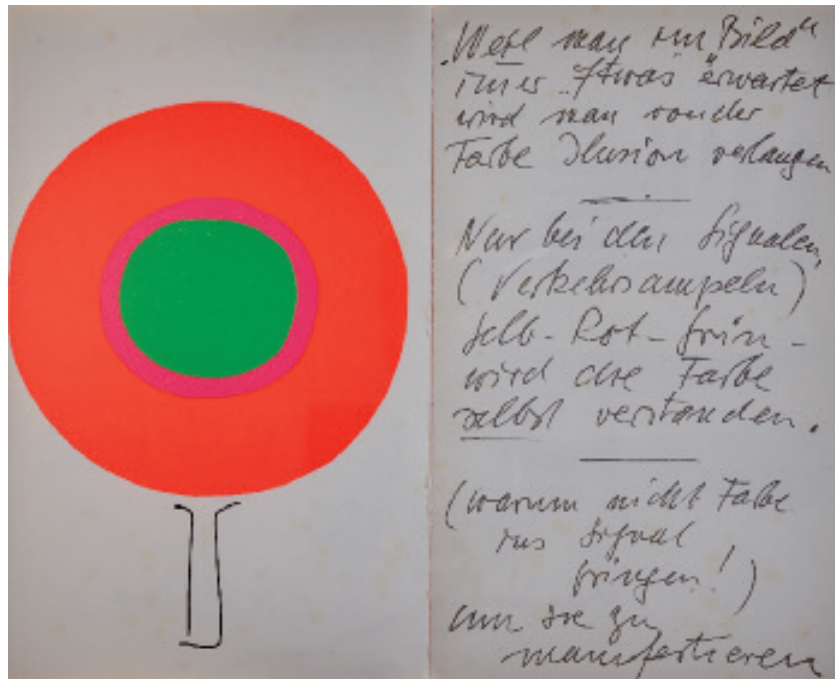 „Weil man im „Bild“
immer „Etwas“ erwartet
wird man von der
Farbe Ilusion verlangen
Nur bei den Signalen,
(Verkehrsampeln)
Gelb-Rot-Grün-
wird die Farbe
selbst verstanden.
(warum nicht Farbe
ins Signal
bringen!)
um sie zu
manifestieren